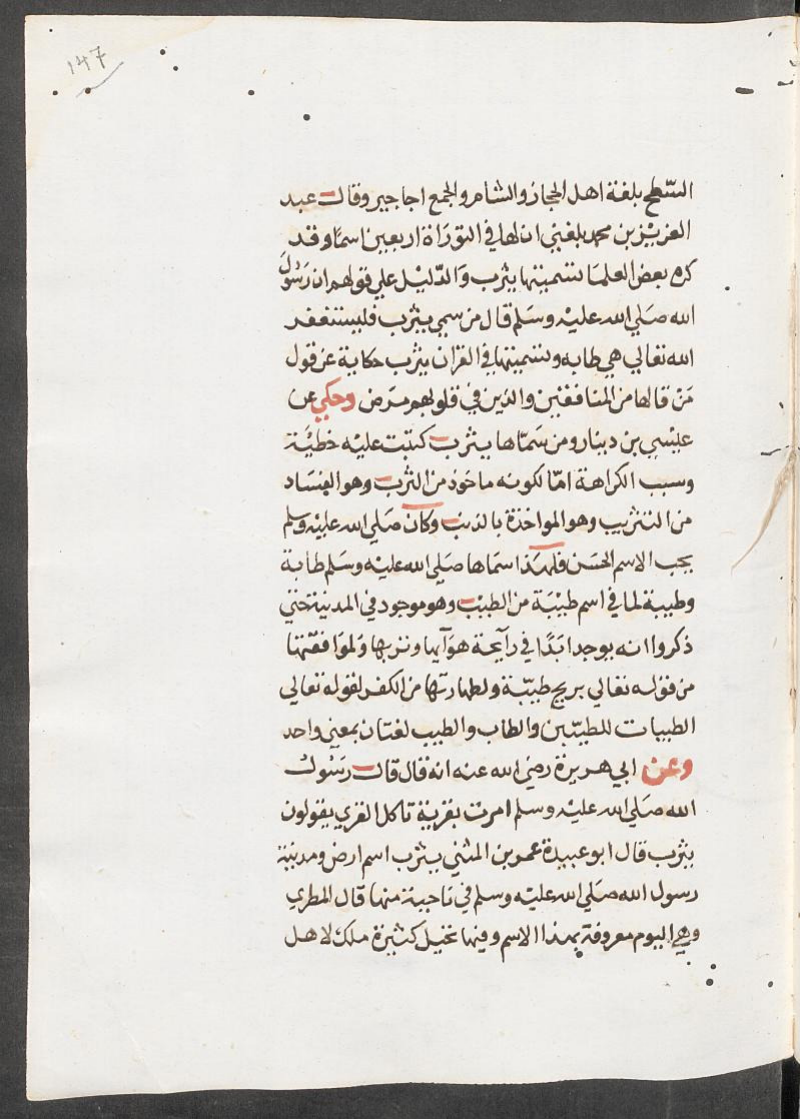 ١٤٧
السّطح بلغة اهل الحجاز والشام والجمع اجاجير وقال عبد
العزيز بن محمد بلغني ان لها في التوراة اربعين اسمًا وقد
كره بعض العلما تسميتها يثرب والدّليل علي قولهم ان رَسُولَ
الله صَلي الله عليه وسَلم قال من سمي يثرب فليستغفر
الله تعالي هي طابه وتسميتها في القران يثرب حكاية عن قول
مَنْ قالها من المنافقين والذين في قلوبهم مرَض وحكي عن
عيسي بن دينار ومن سَمّاها يثرب كتبت عليه خطيئة
وسبب الكراهة امّا لكونه ماخوذ من الثرب وهو الفسَاد
من التثريب وهو المواخذة بالذنب وكان صَلي الله عليه وسلم
يحب الاسم الحسَن فلهذا سمَاها صَلي الله عليه وسَلم طابة
وطيبة لما في اسم طيْبَة من الطيْب وهو موجود في المدينة حتي
ذكروا انه يوجد ابَدًا في رآيحة هوَآيها وتربها ولموَافقتها
من قوله تعالي بريح طيّبة ولطهارتها من الكفر لقوله تعالي
الطيبات للطيّبين والطاب والطيب لغتان بمعني واحد
وعن ابي هريرة رضي الله عنه انه قال قال رسَوُل
الله صَلي الله عليه وسلم امرت بقرية تاكل القري يقولون
يثرب قال ابو عبيدة عمر بن المثني يثرب اسم ارض ومدينة
رسول الله صَلي الله عليه وسلم في ناحية منها قال المطري
وهي اليوم معروفة بهذا الاسم وفيها نخيل كثيرة ملك لاهل